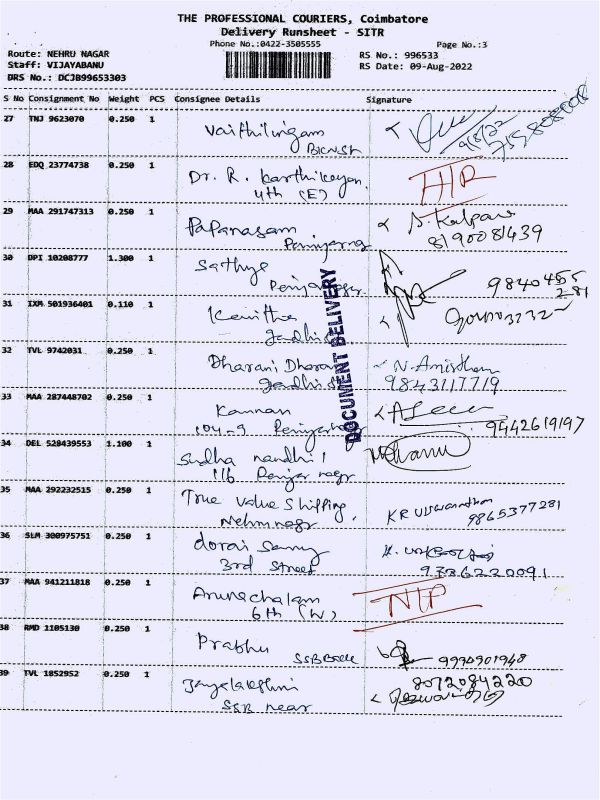 THE PROFESSIONAL COURIERS, Coimbatore
Delivery Runsheet - SITR
Phone No.:0422-3505555
Page No.:3
Route: NEHRU NAGAR
RS No.: 996533
Staff: VIJAYABANU
RS Date: 09-Aug-2022
DRS No.: DCJB99653303
S No Consignment No Weight PCS Consignee Details Signature
27 TNJ 9623070 0.250 1
Vaithilingam
9/8/22
28 EDQ 23774738 0.250 1
Dr. R. Karthikeyan.
4th (E)
29 MAA 291747313 0.250 1
Papanasam
S. Kalpana
8190081439
30 DPI 10208777 1.300 1
Sathya
9840455
281
31 IXM 501936401 0.110 1
Kavitha
32 TVL 9742031 0.250 1
Dharani Dharan
9843117719
DOCUMENT DELIVERY
33 MAA 287448702 0.250 1
Kannan
104-9
9442619197
34 DEL 528439553 1.100 1
Sudha nandhi
116
35 MAA 292232515 0.250 1
True Value Shipping,
Nehru nagr
KR Viswanathan
9865377281
36 SLM 300975751 0.250 1
dorai Samy
3rd Street
9786220091
37 MAA 941211818 0.250 1
Arunachalam
6th (W)
38 RMD 1105130 0.250 1
Prabhu
9994901948
39 TVL 1852952 0.250 1
Jayalakshmi
SSB near
8072084220